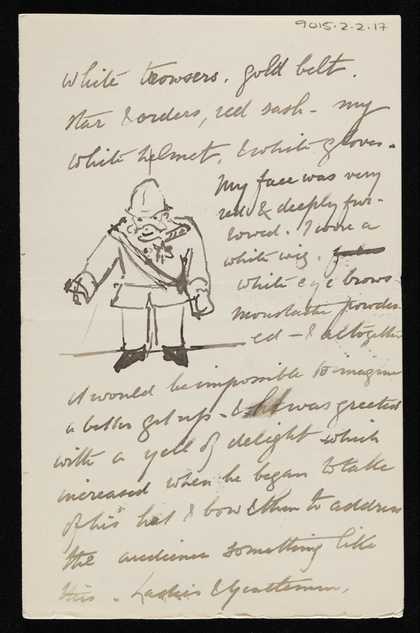 9015.2.2.17
white trowsers. gold belt.
star & orders, red sash - my
white helmet, & white gloves -
My face was very
red & deeply fur-
rowed. I wore a
white wig.
white eye brows -
moustache powder-
ed - & altogether
it would be impossible to imagine
a better get up - & was greeted
with a yell of delight which
increased when he began to take
off his hat & bow & then to address
the audience something like
this - Ladies & Gentlemen,